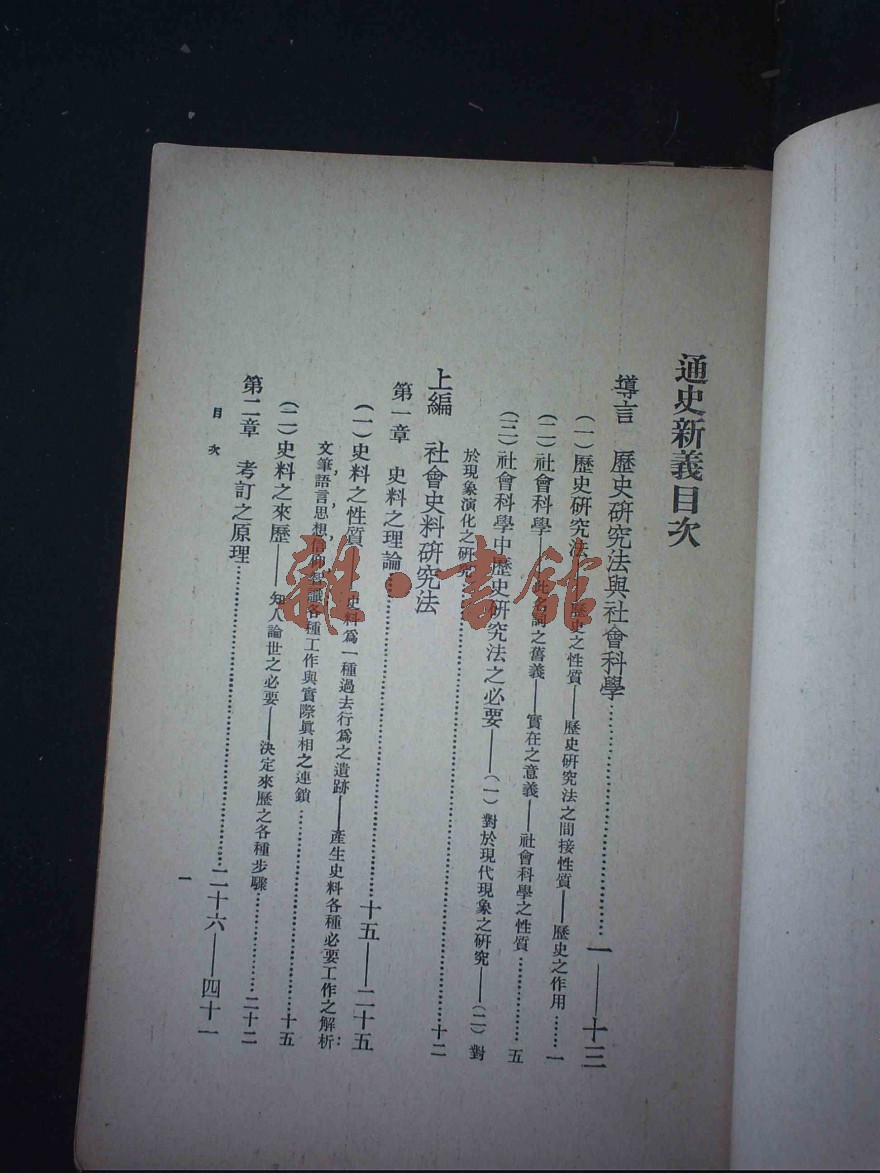 通史新義目次
導言　歷史研究法與社會科學……一——十三
（一）歷史研究法——歷史之性質——歷史研究法之間接性質——歷史之作用……一
（二）社會科學——此名詞之舊義——實在之意義——社會科學之性質……五
（三）社會科學中歷史研究法之必要——（一）對於現代現象之研究——（二）對
於現象演化之研究……十二
上編　社會史料研究法
第一章　史料之理論……十五——二十五
（一）史料之性質——史料爲一種過去行爲之遺跡——產生史料各種必要工作之解析：
文筆，語言，思想，信仰，智識各種工作與實際眞相之連鎖……十五
（二）史料之來歷——知人論世之必要——決定來歷之各種步驟……二十二
第二章　考訂之原理……二十六——四十一
目次
一
雜·書館